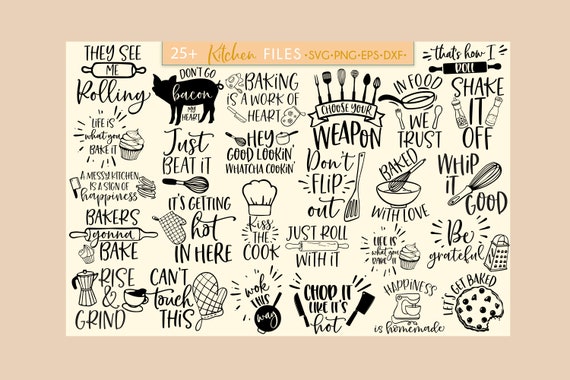 25+ Kitchen FILES •SVG•PNG•EPS•DXF•
THEY SEE
ME
Rolling
DON'T GO
bacon
MY
HEART
BAKING
IS A WORK OF
HEART
CHOOSE YOUR
WEAPON
IN FOOD
WE
TRUST
that's how I
ROLL
SHAKE
IT
OFF
LIFE IS
what you
BAKE IT
Just
BEAT IT
HEY
GOOD LOOKIN'
WHATCHA COOKIN'
Don't
FLIP
out
BAKED
WITH LOVE
WHIP
IT
GOOD
A MESSY KITCHEN
IS A SIGN OF
happiness
IT'S GETTING
hot
IN HERE
Kiss
THE
COOK
BAKERS
gonna
BAKE
JUST ROLL
WITH IT
LIFE IS
what you
BAKE IT
Be
grateful
RISE
&
GRIND
CAN'T
touch
THIS
wok
THIS
way
CHOP IT
LIKE IT'S
hot
HAPPINESS
is homemade
LET'S GET BAKED